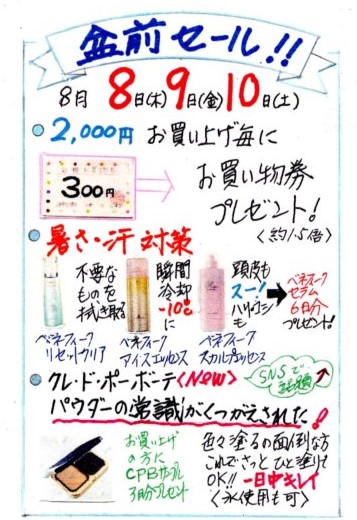 盆前セール!!
8月 8日(木) 9日(金) 10日(土)
2,000円 お買い上げ毎に
300円
お買い物券
プレゼント!
〈約1.5倍〉
暑さ・汗 対策
不要な
ものを
拭き取る
ベネフィーク
リセットクリア
瞬間
冷却
-10℃
に
ベネフィーク
アイスエッセンス
頭皮も
スー!
ハリ・コシ
も
ベネフィーク
スカルプエッセンス
ベネフィーク
セラム
6日分
プレゼント!
クレ・ド・ポーボーテ〈New〉
SNSで
話題
パウダーの常識がくつがえされた!
お買い上げ
の方に
CPBサンプル
3日分プレゼント
色々塗るの面倒な方
これでさっと ひと塗り
OK!! 一日中キレイ
〈水使用も可〉